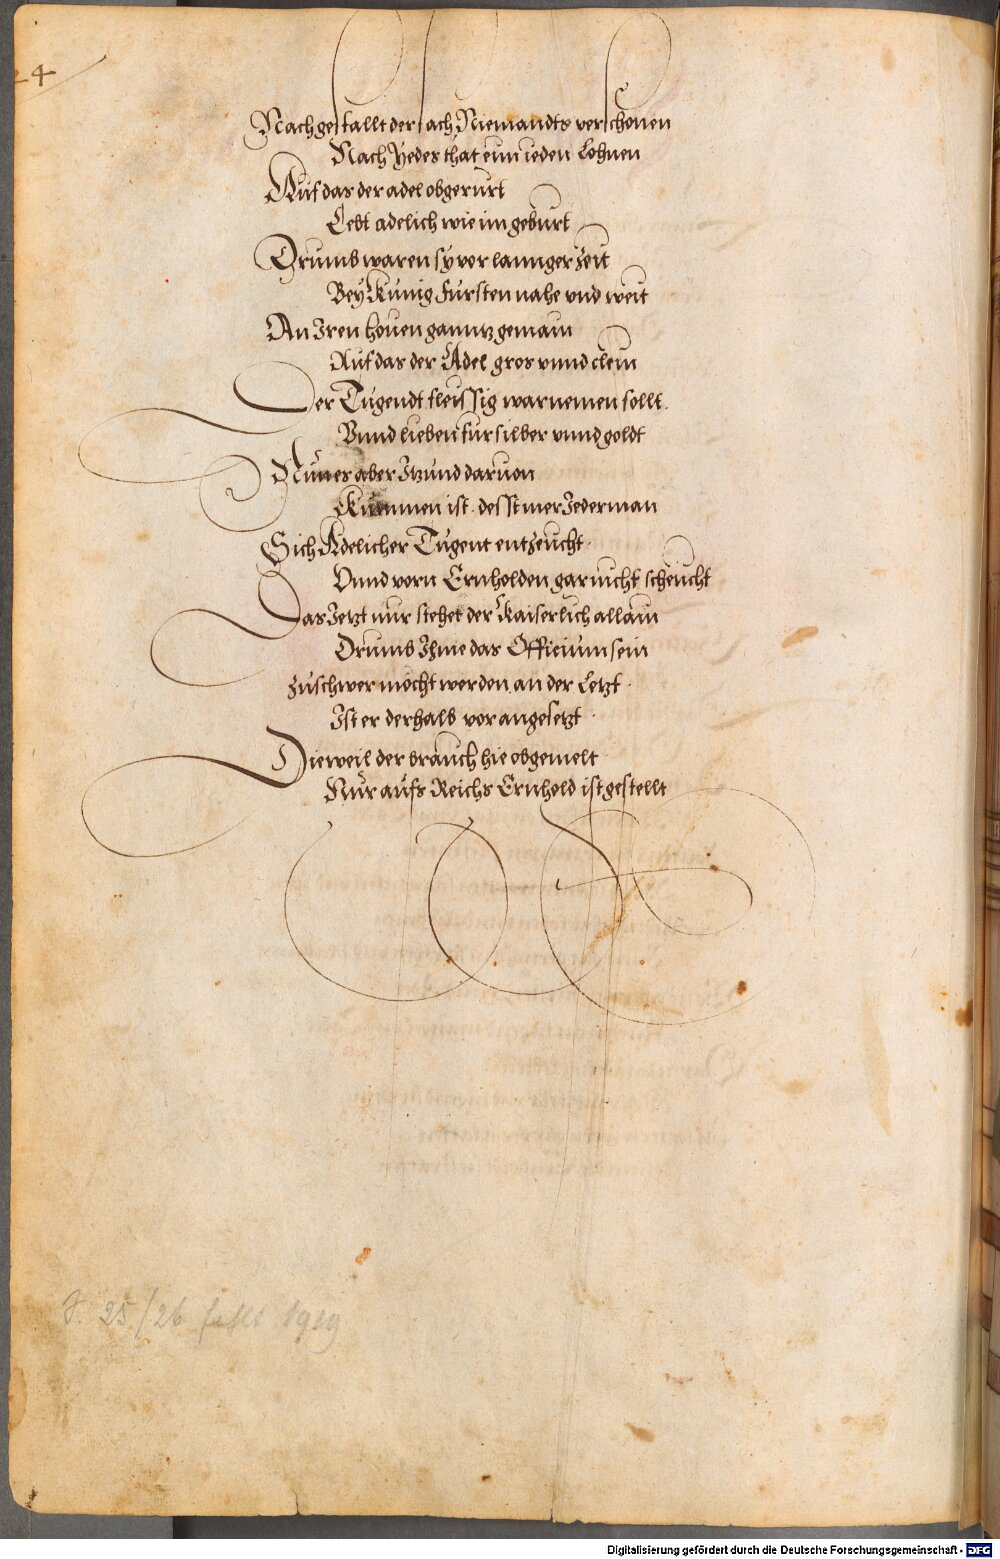 24
Nach gestallt der sach Niemandts verschonen
Nach Yedes that ein ieden Lohnen
Auf das der adel obgerürt
Lebt adelich wie im gebürt
Drumb waren sy vor lannger Zeit
Bey Künig Fürsten nahe vnd weit
An Iren houen ganntz gemain
Auf das der Adel gros vnnd clein
Der Tugendt fleissig warnemen sollt.
Vnnd lieben für silber vnnd goldt
Nün es aber Itzünd daruon
Kummen ist. desst mer Iederman
Sich Adelicher Tugent entzeücht.
Vnnd vorn Ernholden gar nicht scheücht
Das Ietzt nür stehet der Kaiserlich allain
Drumb Ihme das Officium sein
Züschwer möcht werden an der Letzt.
Ist er derhalb vor angesetzt.
Dieweil der braüch hie obgemelt
Nür aüfs Reichs Ernhold ist gestellt
S. 25/26 fehlt 1919
Digitalisierung gefördert durch die Deutsche Forschungsgemeinschaft - DFG